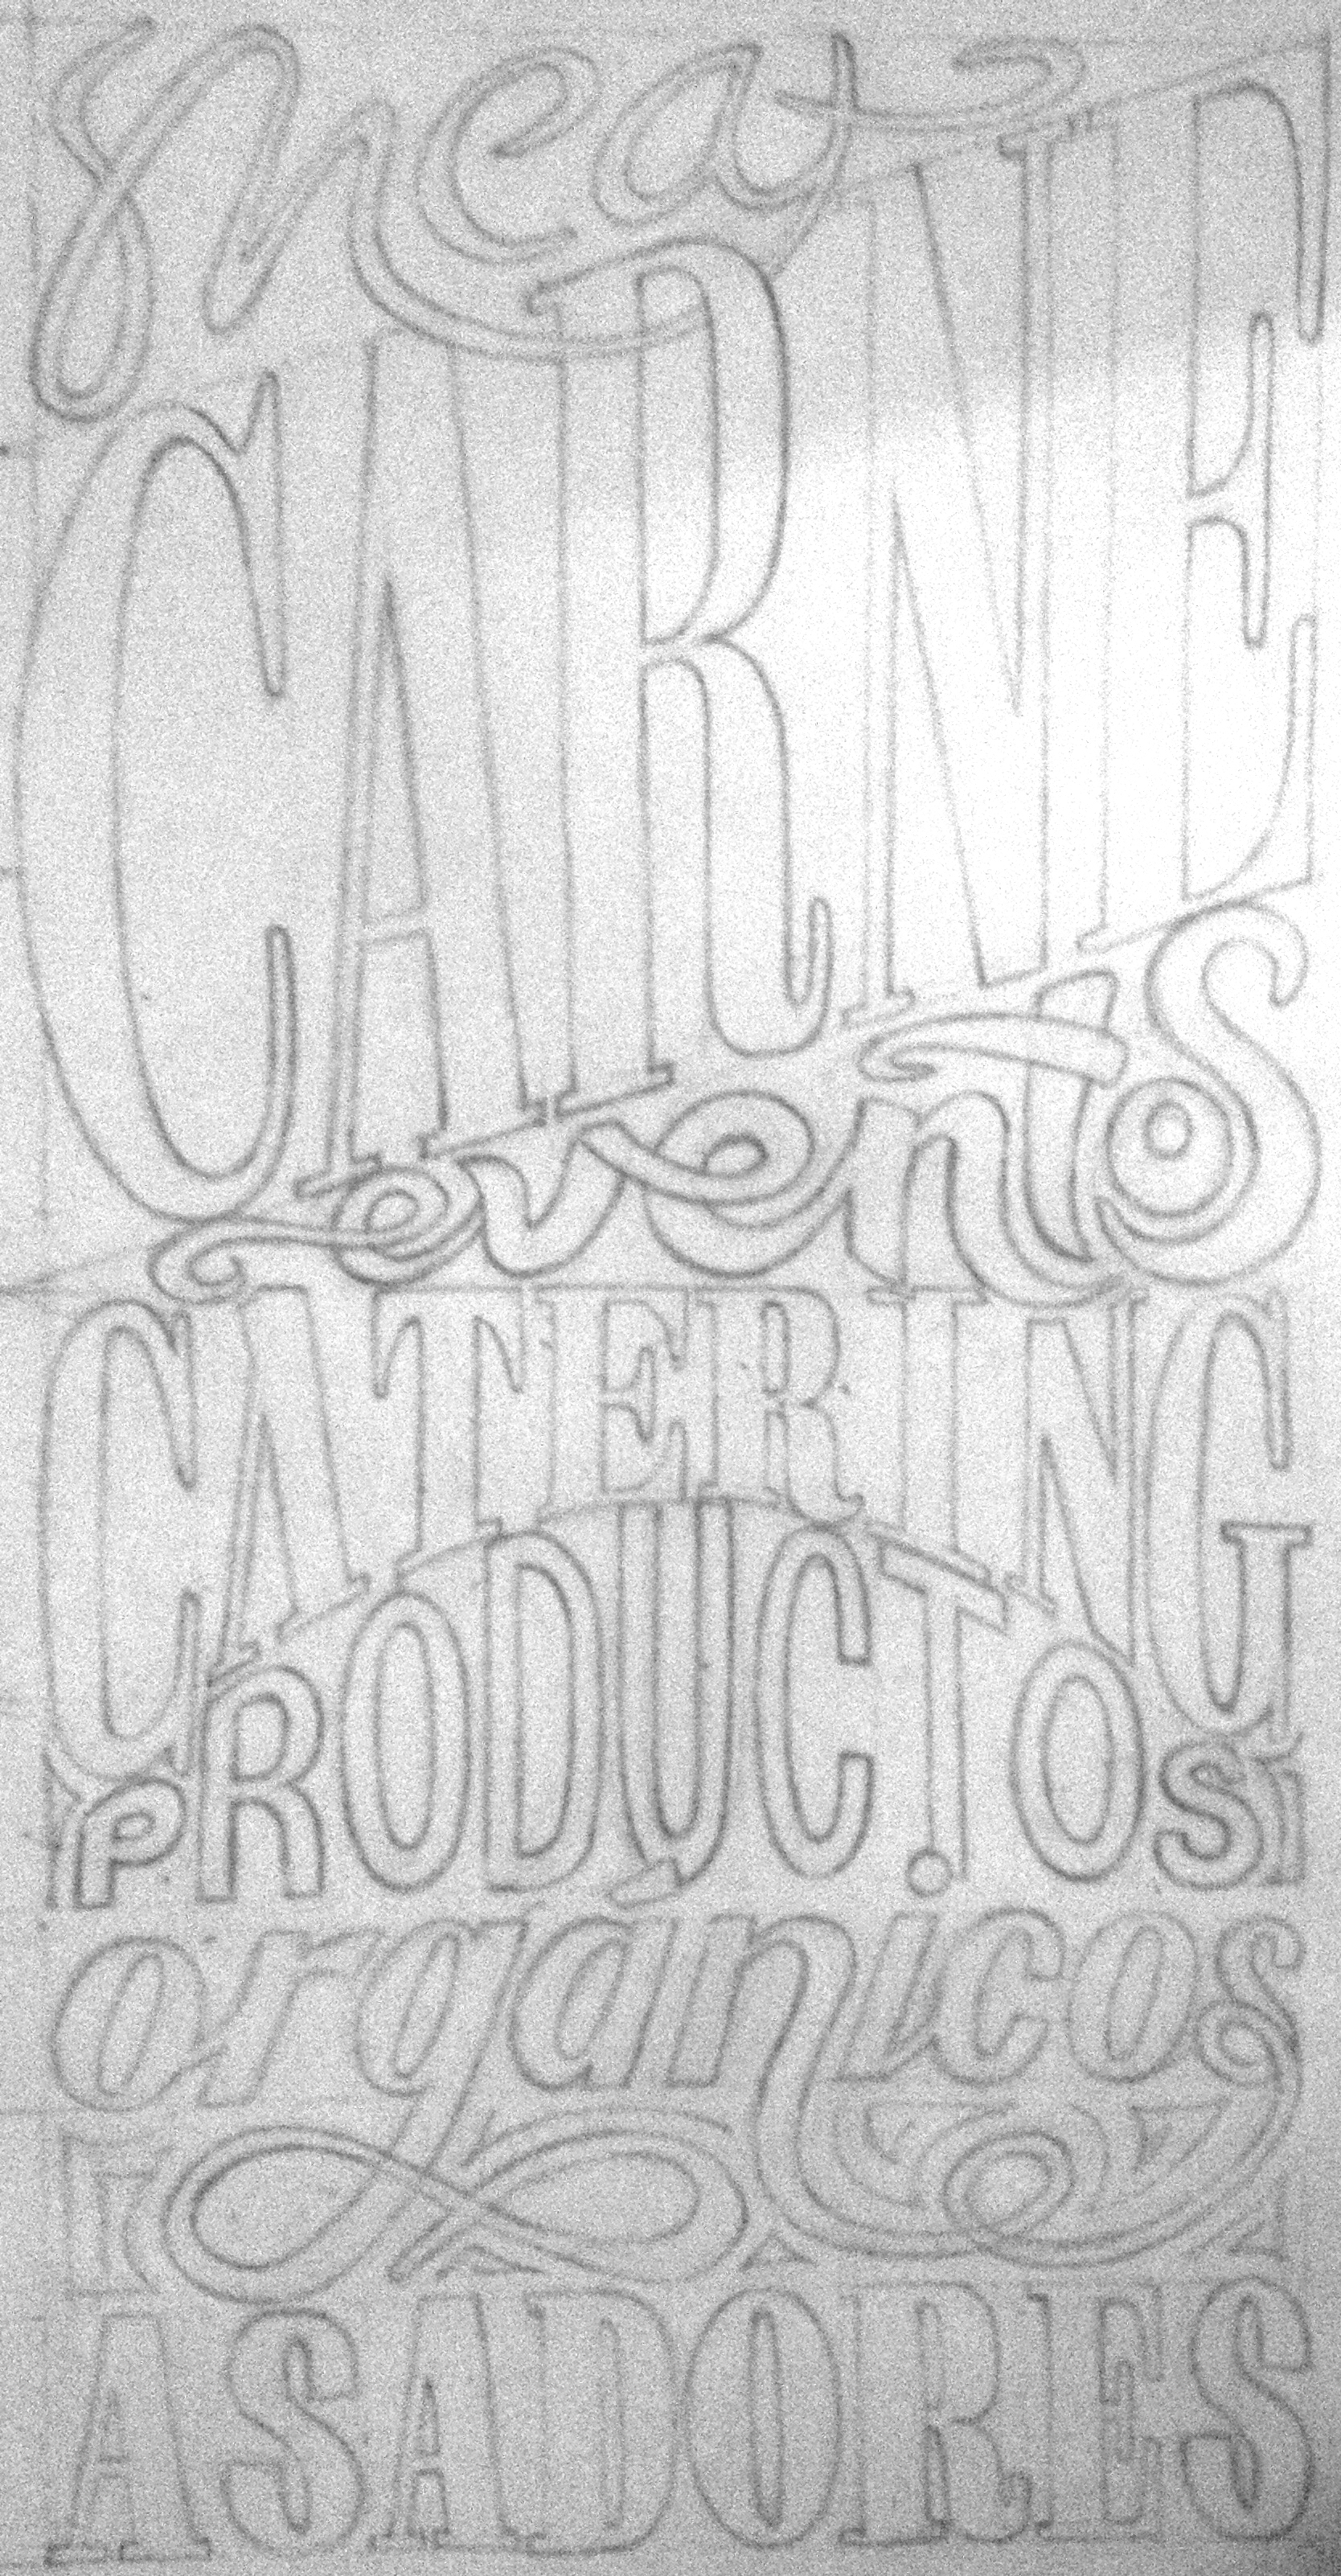 meat
CARNE
eventos
CATERING
PRODUCTOS
orgánicos
ASADORES